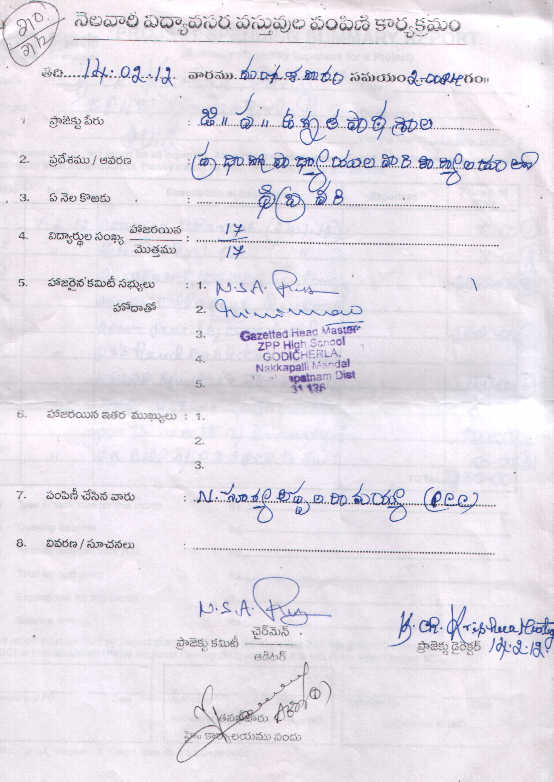 210
21/2
నెలవారి విద్యావసర వస్తువుల పంపిణి కార్యక్రమం
తేది..... 14.02.12 వారము మంగళవారం సమయం 2-00 గం॥
1 ప్రాజెక్టు పేరు : జి॥ ప॥ ఉన్నత పాఠశాల
2. ప్రదేశము / ఆవరణ : ప్రధానోపాధ్యాయుల వారి కార్యాలయం
3. ఏ నెల కొఱకు : ఫిబ్రవరి
4. విద్యార్థుల సంఖ్య హాజరయిన 17
మొత్తము 17
5. హాజరైన కమిటీ సభ్యులు : 1. N.S.A.
హోదాతో 2.
3. Gazetted Head Master
ZPP High School
4. GODICHERLA,
Nakkapalli Mandal
5. apatnam Dist
31 126
6. హాజరయిన ఇతర ముఖ్యులు : 1.
2.
3.
7. పంపిణీ చేసిన వారు : N. సూర్య
8. వివరణ / సూచనలు :
N.S.A.
ప్రాజెక్టు కమిటీ చైర్‌మెన్
ఆడిటర్
K. Ch. Krishna
ప్రాజెక్టు డైరెక్టర్ 14.2.12
కార్యాలయము నందు